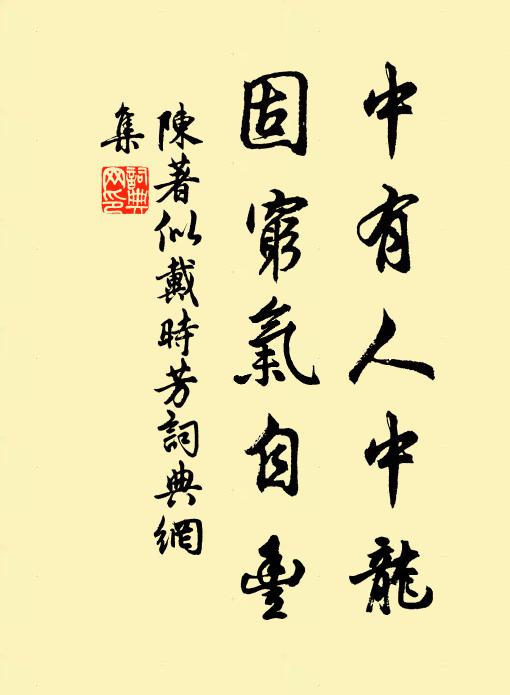 中有人中龍
固窮氣自豐
陳著似戴時芳詞典網
集
詞典
网印